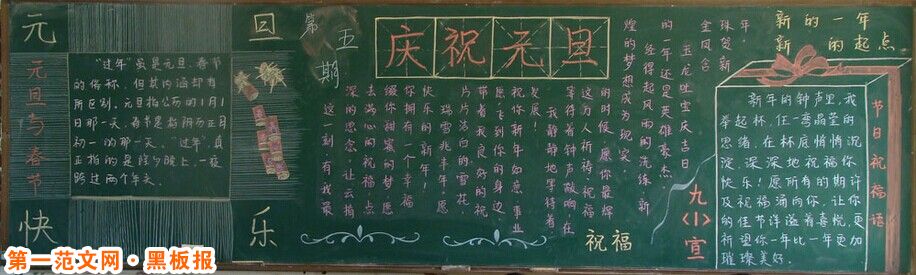 元
旦
快
乐
元旦与春节
"过年"虽是元旦、春节
的俗称，但其内涵却有
所区别。元旦指公历的1月1
日那一天，春节是指阴历正月
初一的那一天。"过年"真
正指的是除夕晚上，一夜
跨过两个年头。
第五期
庆祝元旦
这一刻有我最
深的思念。让云捎
去满心的祝福点
缀你甜蜜的梦愿
你拥有一个幸福
快乐的新年！
瑞雪兆丰年！愿
片片洁白的雪花，
带着我良好的祝
愿，飞到你的身边
祝你新年如意，事业
发展！
我静静地等待着
等待着钟声敲响，在
这万人祈祷祝福
的时候，愿你最辉
煌的梦想成为现实。
经得起风雨的洗练，新
的一年还是英雄豪杰
玉龙吐宝庆吉日
金凤含
珠贺新
年。
祝福
九〈1〉宣
新的一年
新的起点
新年的钟声里，我
举起杯，任一弯晶莹的
思绪，在杯底悄悄沉
淀，深深地祝福你
快乐！愿所有的期许
及祝福涌向你，让你
的佳节洋溢着喜悦，更
祈望你一年比一年更加
璀璨美好。
节日祝福语
第一范文网·黑板报